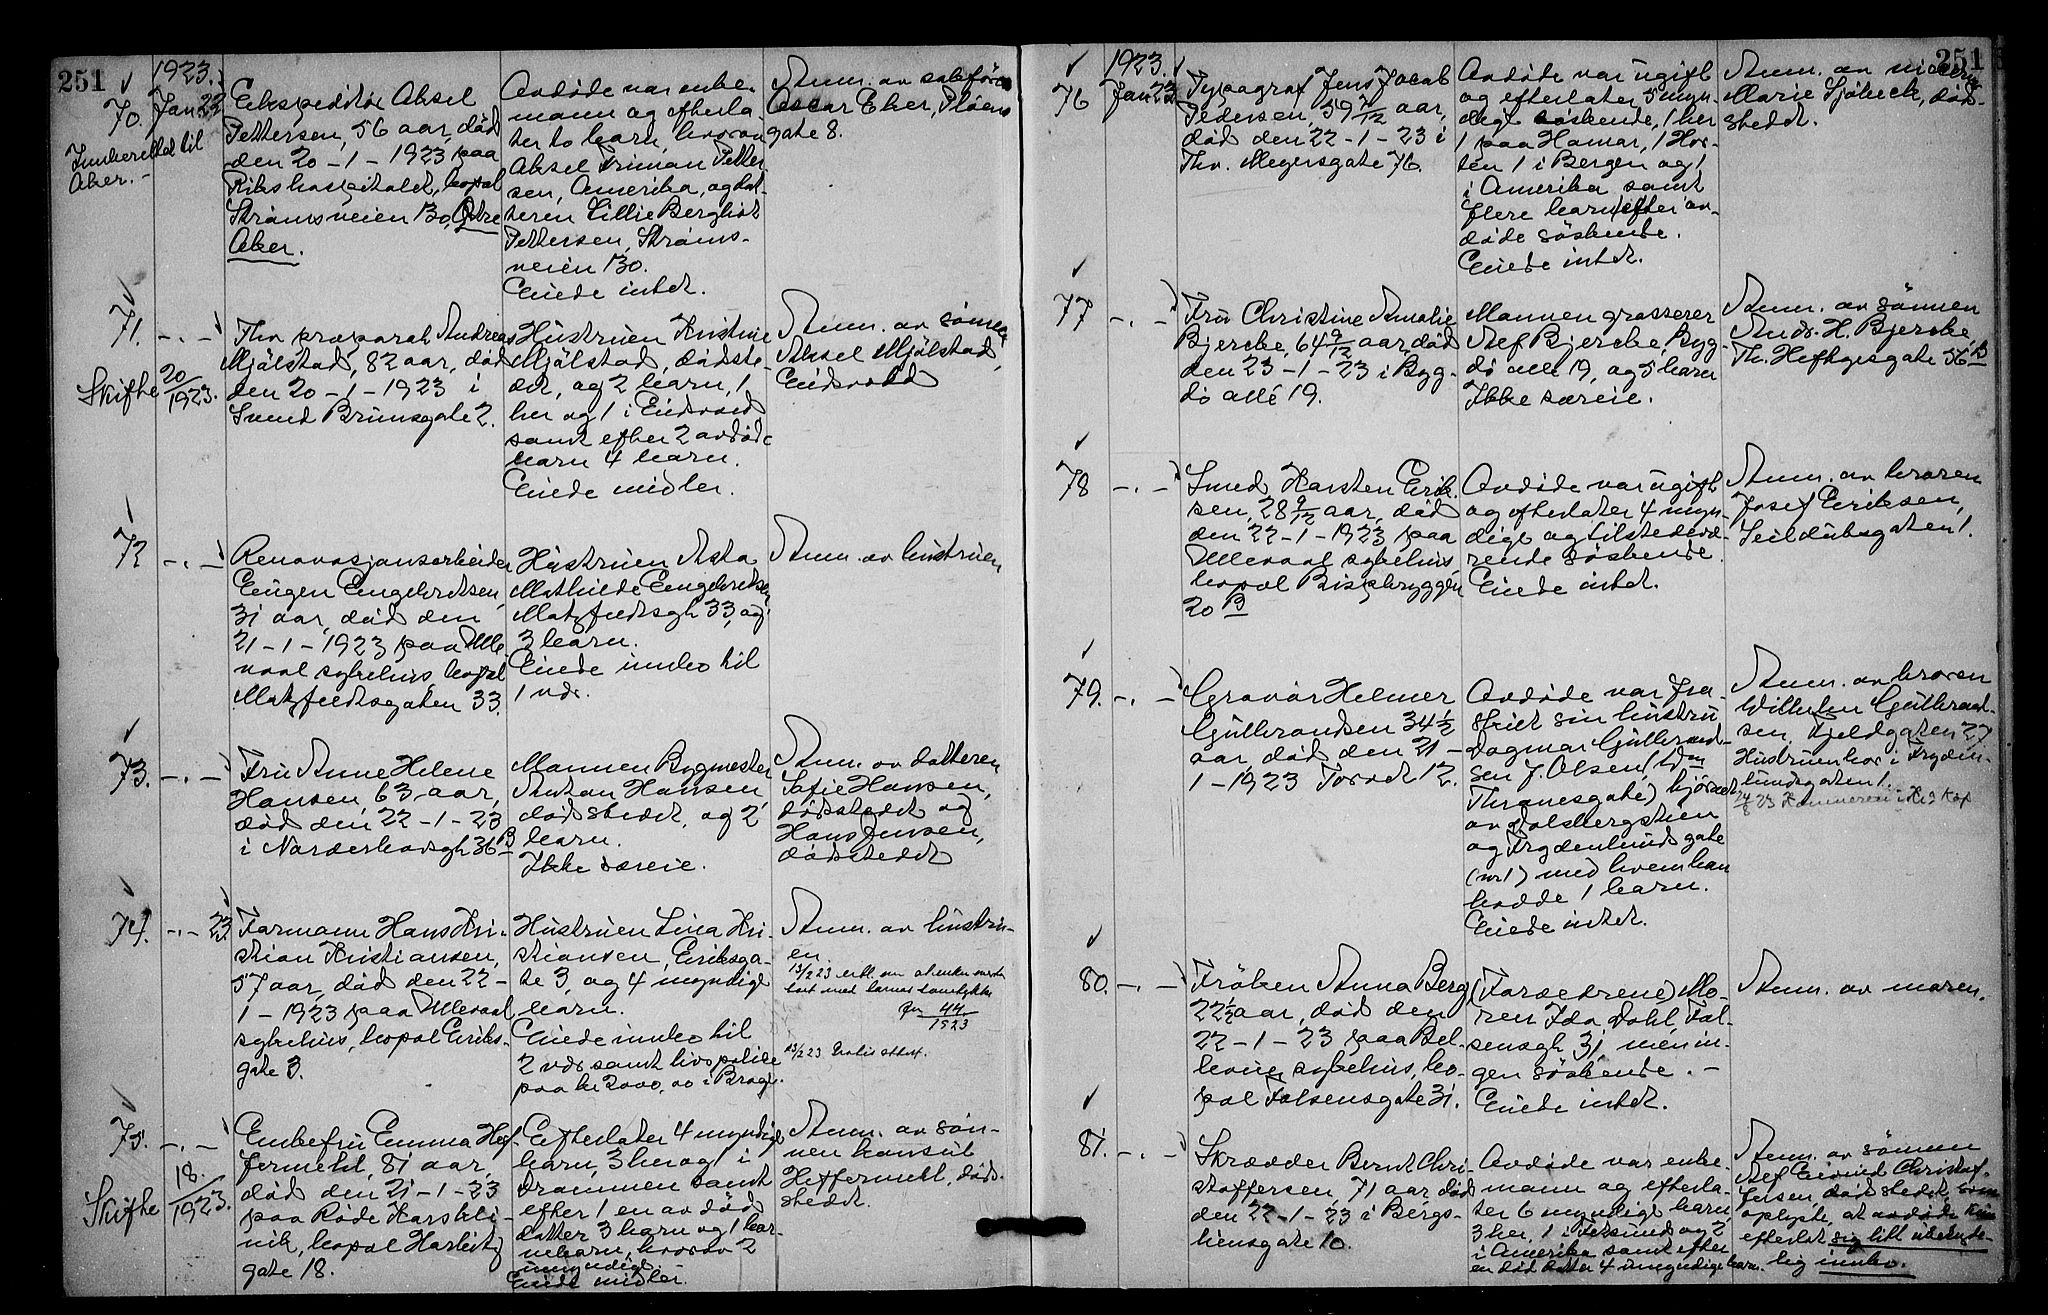 251
1923.
70. Jan 22
Innberettet til
Aker. -
Ekspeditør Aksel
Pettersen, 56 aar, død
den 20-1-1923 paa
Rikshospitalet, bopæl
Strømsveien 130, Østre
Aker.
Avdøde var enke-
mann og efterla-
ter to barn, hvorav
Aksel Pettersen, Amerika, og dat-
teren Lillie Bergliot
Pettersen, Strøms-
veien 130.
Eiede intet.
Anm. av sakfører
Oscar Eker, Pløens
gate 8.
71. -.-
Skifte 20/1923.
Thv præparat Andreas
Mjølstad, 82 aar, død
den 20-1-1923 i
Svend Brunsgate 2.
Hustruen Kristine
Mjølstad, dødste-
det, og 2 barn, 1
her og 1 i Eidsvold
samt efter 2 avdøde
barn 4 barn.
Eiede midler.
Anm. av sønnen
Aksel Mjølstad,
Eidsvold
72 -.-
Renovasjonsarbeider
Eugen Engebretsen,
31 aar, død den
21-1-1923 paa Ulle-
vaal sykehus, bopæl
gaten 33.
Hustruen Asta
Mathilde Engebretsen
33, og
3 barn.
Eiede innbo til
1 vær.
Anm. av hustruen
73. -.-
Fru Anne Helene
Hansen, 63 aar,
død den 22-1-23
i Nordenhovsgt 36 B
Mannen Bygmester
Anton Hansen
dødstedet, og 2
barn.
Ikke særeie.
Anm. av datteren
Sofie Hansen,
dødstedet og
Hans Jensen,
dødstedet
74. -.- 23.
Formann Hans Kri-
stian Kristiansen,
57 aar, død den 22-
1-1923 paa Ullevaal
sykehus, bopæl Eriks-
gate 3.
Hustruen Lina Kri-
stiansen, Eriksga-
te 3, og 4 myndige
barn.
Eiede innbo til
2 vær samt livspolise
paa kr 2000,00 i Brage.
Anm. av hustru-
en.
13/2 23 erkl. om at enken overta
boet med barnas samtykke
44/1923
13/2 23 Gratis attest.
75. -.-
Skifte 18./1923.
Enkefru Emma Hef-
fermehl, 81 aar,
død den 21-1-23
paa Røde Kors kli-
nik, bopæl Harbitz
gate 18.
Efterlater 4 myndige
barn, 3 her og 1 i
Drammen samt
efter 1 en av død
datter 3 barn og 1 bar-
nebarn, hvorav 2
umyndige.
Eiede midler.
Anm. av søn-
nen konsul
Heffermehl, død-
stedet.
251
1923.
76 Jan 23
Typograf Jens Jacob
Pedersen, 59 /12 aar,
død den 22-1-23 i
Thv. Meyersgate 76.
Avdøde var ugift
og efterlater 5 myn-
dige søskende, 1 her
1 paa Hamar, 1 Hor-
ten 1 i Bergen og 1
i Amerika samt
flere barn efter av-
døde søskende.
Eiede intet.
Anm. av
Marie Sjøbeck, død-
stedet.
77 -.-
Fru Christine Amalie
Bjercke, 64 9/12 aar, død
den 23-1-23 i Byg-
dø allé 19.
Mannen grosserer
Alf Bjercke, Byg-
dø alle 19, og 5 barn
Ikke særeie.
Anm. av sønnen
Andr. H. Bjercke,
Th. Heftyesgate 56 B
78 -.-
Smed Karsten Erik-
sen, 28 9/12 aar, død
den 22-1-1923 paa
Ullevaal sykehus
bopæl Bispbryggen
20 B
Avdøde var ugift
og efterlater 4 myn-
dige og tilstedevæ-
rende søskende.
Eiede intet.
Anm. av broren
Josef Eriksen,
Seilduksgaten 1.
79. -.-
Gravør Helmer
Gulbrandsen 34 1/2
aar, død den 21-
1-1923 Torvet 12.
Avdøde var fra
skilt sin hustru
Dagmar Gulbrand-
sen f. Olsen (Edm
Thranesgate) hjørnet
av Falsbergstien
og Frydenlunds gate
(nr 1) med hvem han
hadde 1 barn.
Eiede intet.
Anm. av broren
Wilhelm Gulbrand-
sen, Kjeldsgaten 27
Hustruen bor i Fryden-
lundsgaten 1.
80. -.-
Frøken Anna Berg
22 1/2 aar, død den
22-1-23 paa Bet-
hanien sykehus, bo-
pæl Falsensgate 31.
(Forældrene) Mo-
ren Ida Dahl, Fal-
sensgt 31, men in-
gen søskende. -
Eiede intet.
Anm. av moren.
81. -.-
Skrædder Bernt Chri-
stoffersen, 71 aar, død
den 22-1-23 i Bergs-
liensgate 10.
Avdøde var enke-
mann og efterla-
ter 6 myndige barn,
3 her, 1 i Fetsund og 2
i Amerika samt efter
en død datter 4 umyndige barn.
Anm. av sønnen
Alf Eivind Christof-
fersen, dødstedet, som
oplyste, at avdøde kun
efterlot sig litt ubetyde-
lig innbo.